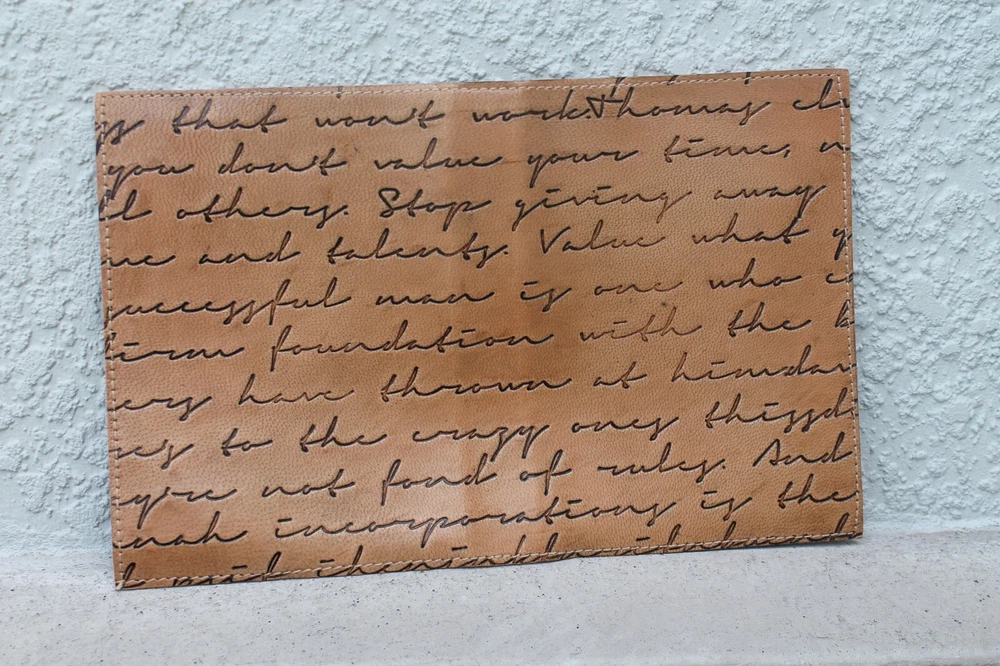 that won't work. Thomas
you don't value your time,
others. Stop giving away
me and talents. Value what y
successful man is one who c
firm foundation with the b
ers have thrown at him dav
re's to the crazy ones this
you're not fond of rules. And
incorporations is the